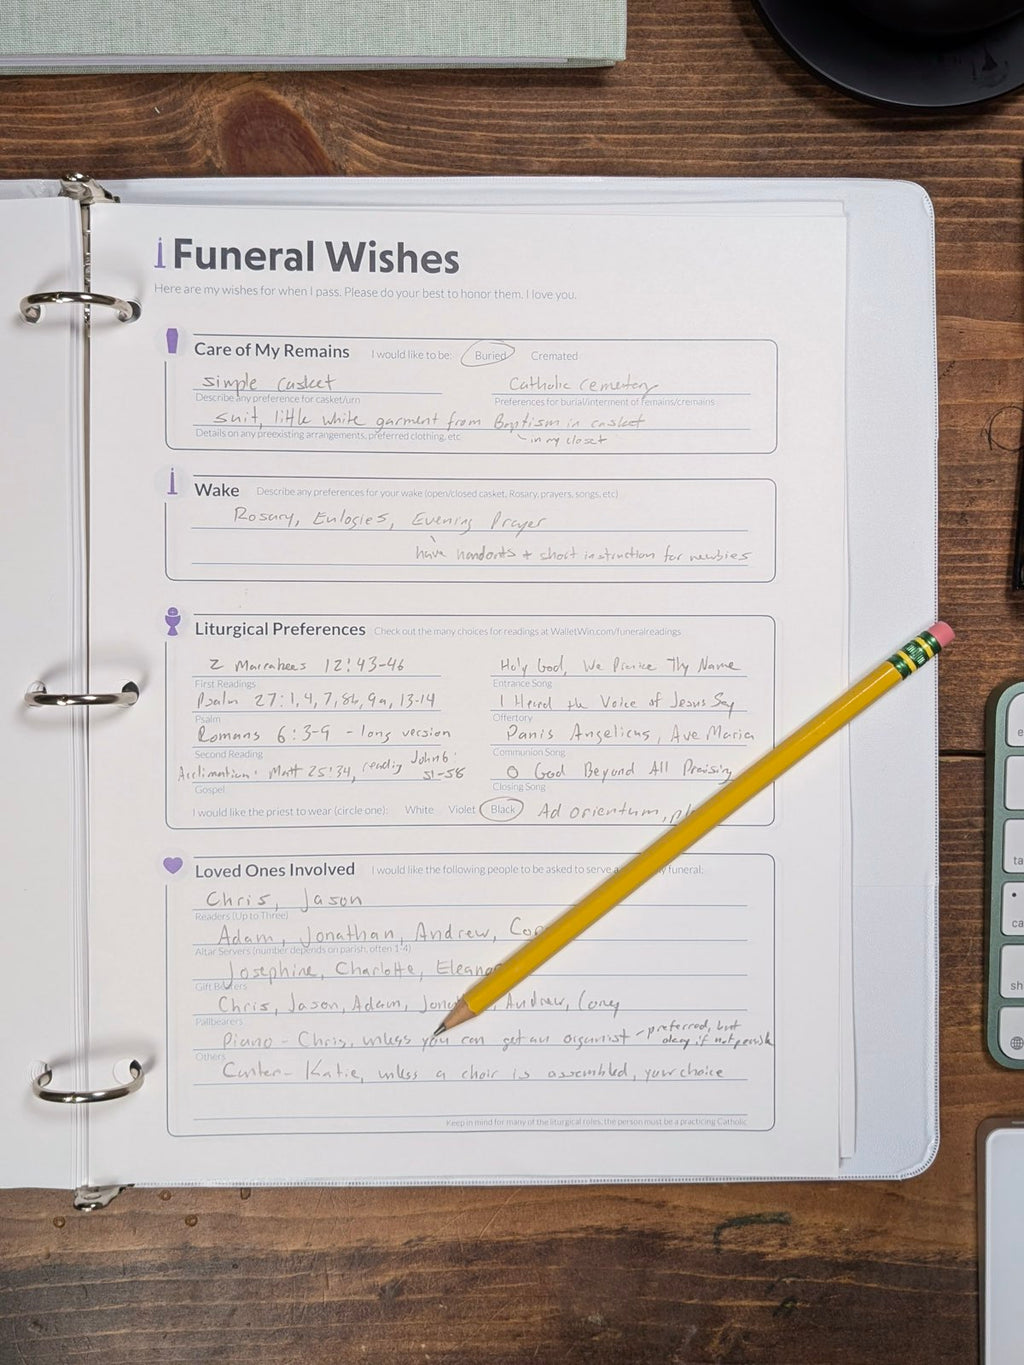 Funeral Wishes
Here are my wishes for when I pass. Please do your best to honor them. I love you.
Care of My Remains I would like to be: Buried Cremated
simple casket Catholic cemetery
Describe any preference for casket/urn Preferences for burial/interment of remains/cremains
suit, little white garment from Baptism in casket
Details on any preexisting arrangements, preferred clothing, etc
in my closet
Wake Describe any preferences for your wake (open/closed casket, Rosary, prayers, songs, etc)
Rosary, Eulogies, Evening Prayer
have handouts + short instruction for newbies
Liturgical Preferences Check out the many choices for readings at WalletWin.com/funeralreadings
2 Maccabees 12:43-46 Holy God, We Praise Thy Name
First Readings Entrance Song
Psalm 27:1, 4, 7, 8b, 9a, 13-14 I Heard the Voice of Jesus Say
Psalm Offertory
Romans 6:3-9 - long version Panis Angelicus, Ave Maria
Second Reading Communion Song
Acclimation: Matt 25:34, reading John 6: 51-58 O God Beyond All Praising
Gospel Closing Song
I would like the priest to wear (circle one): White Violet Black Ad orientum,
Loved Ones Involved I would like the following people to be asked to serve funeral:
Chris, Jason
Readers (Up to Three)
Adam, Jonathan, Andrew,
Altar Servers (number depends on parish, often 1-4)
Josephine, Charlotte,
Gift Bearers
Chris, Jason, Adam, Andrew, Corey
Pallbearers
Piano - Chris, unless you can get an organist - preferred, but okay if not possible
Others
Canter - Katie, unless a choir is assembled, your choice
Keep in mind for many of the liturgical roles, the person must be a practicing Catholic